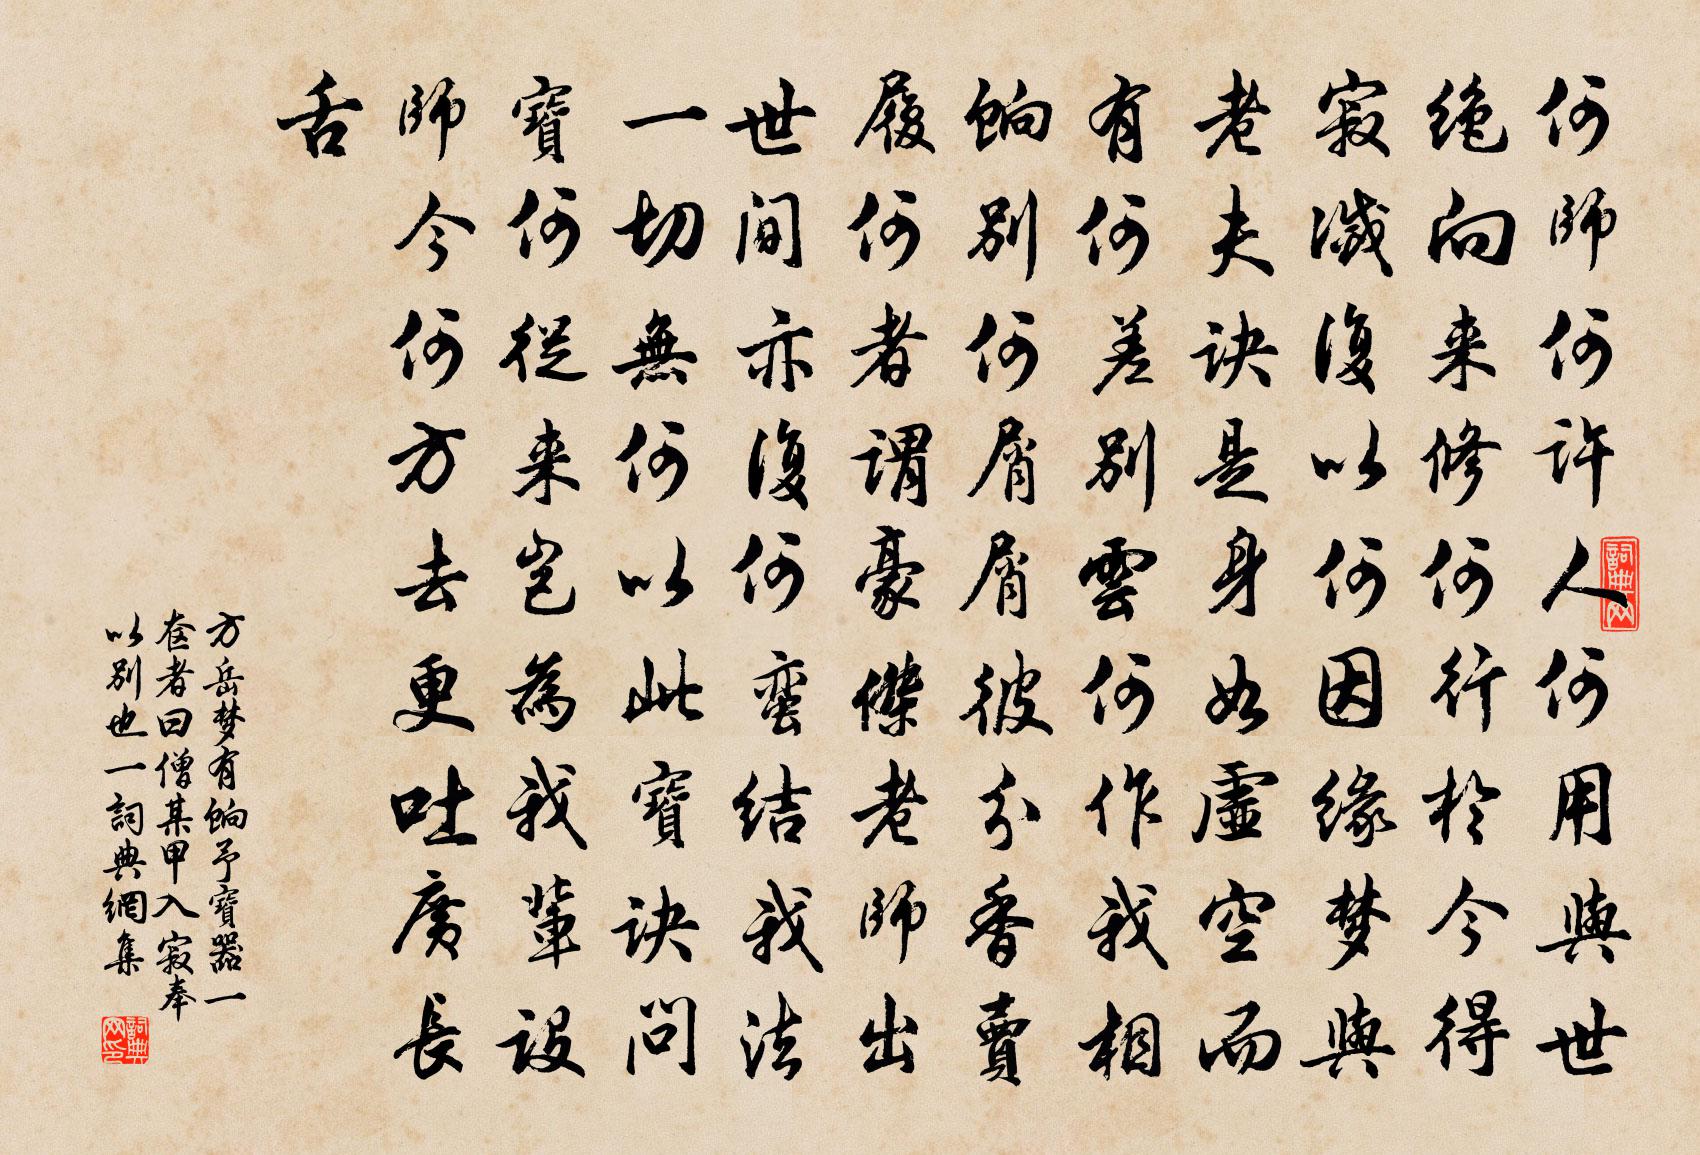 何師何許人何用與世
绝向来修何行於今得
寂滅復以何因缘梦與
老夫訣是身如虛空而
有何差別雲何作我相
餉別何屑屑彼分香賣
履何者謂豪傑老師出
世間亦復何蛮结我法
一切無何以此寶訣問
寶何從来岂為我輩設
師今何方去更吐廣長
舌
方岳梦有餉予寶器一
奁者曰僧某甲入寂奉
以别也一詞典網集
詞典网
詞典网印